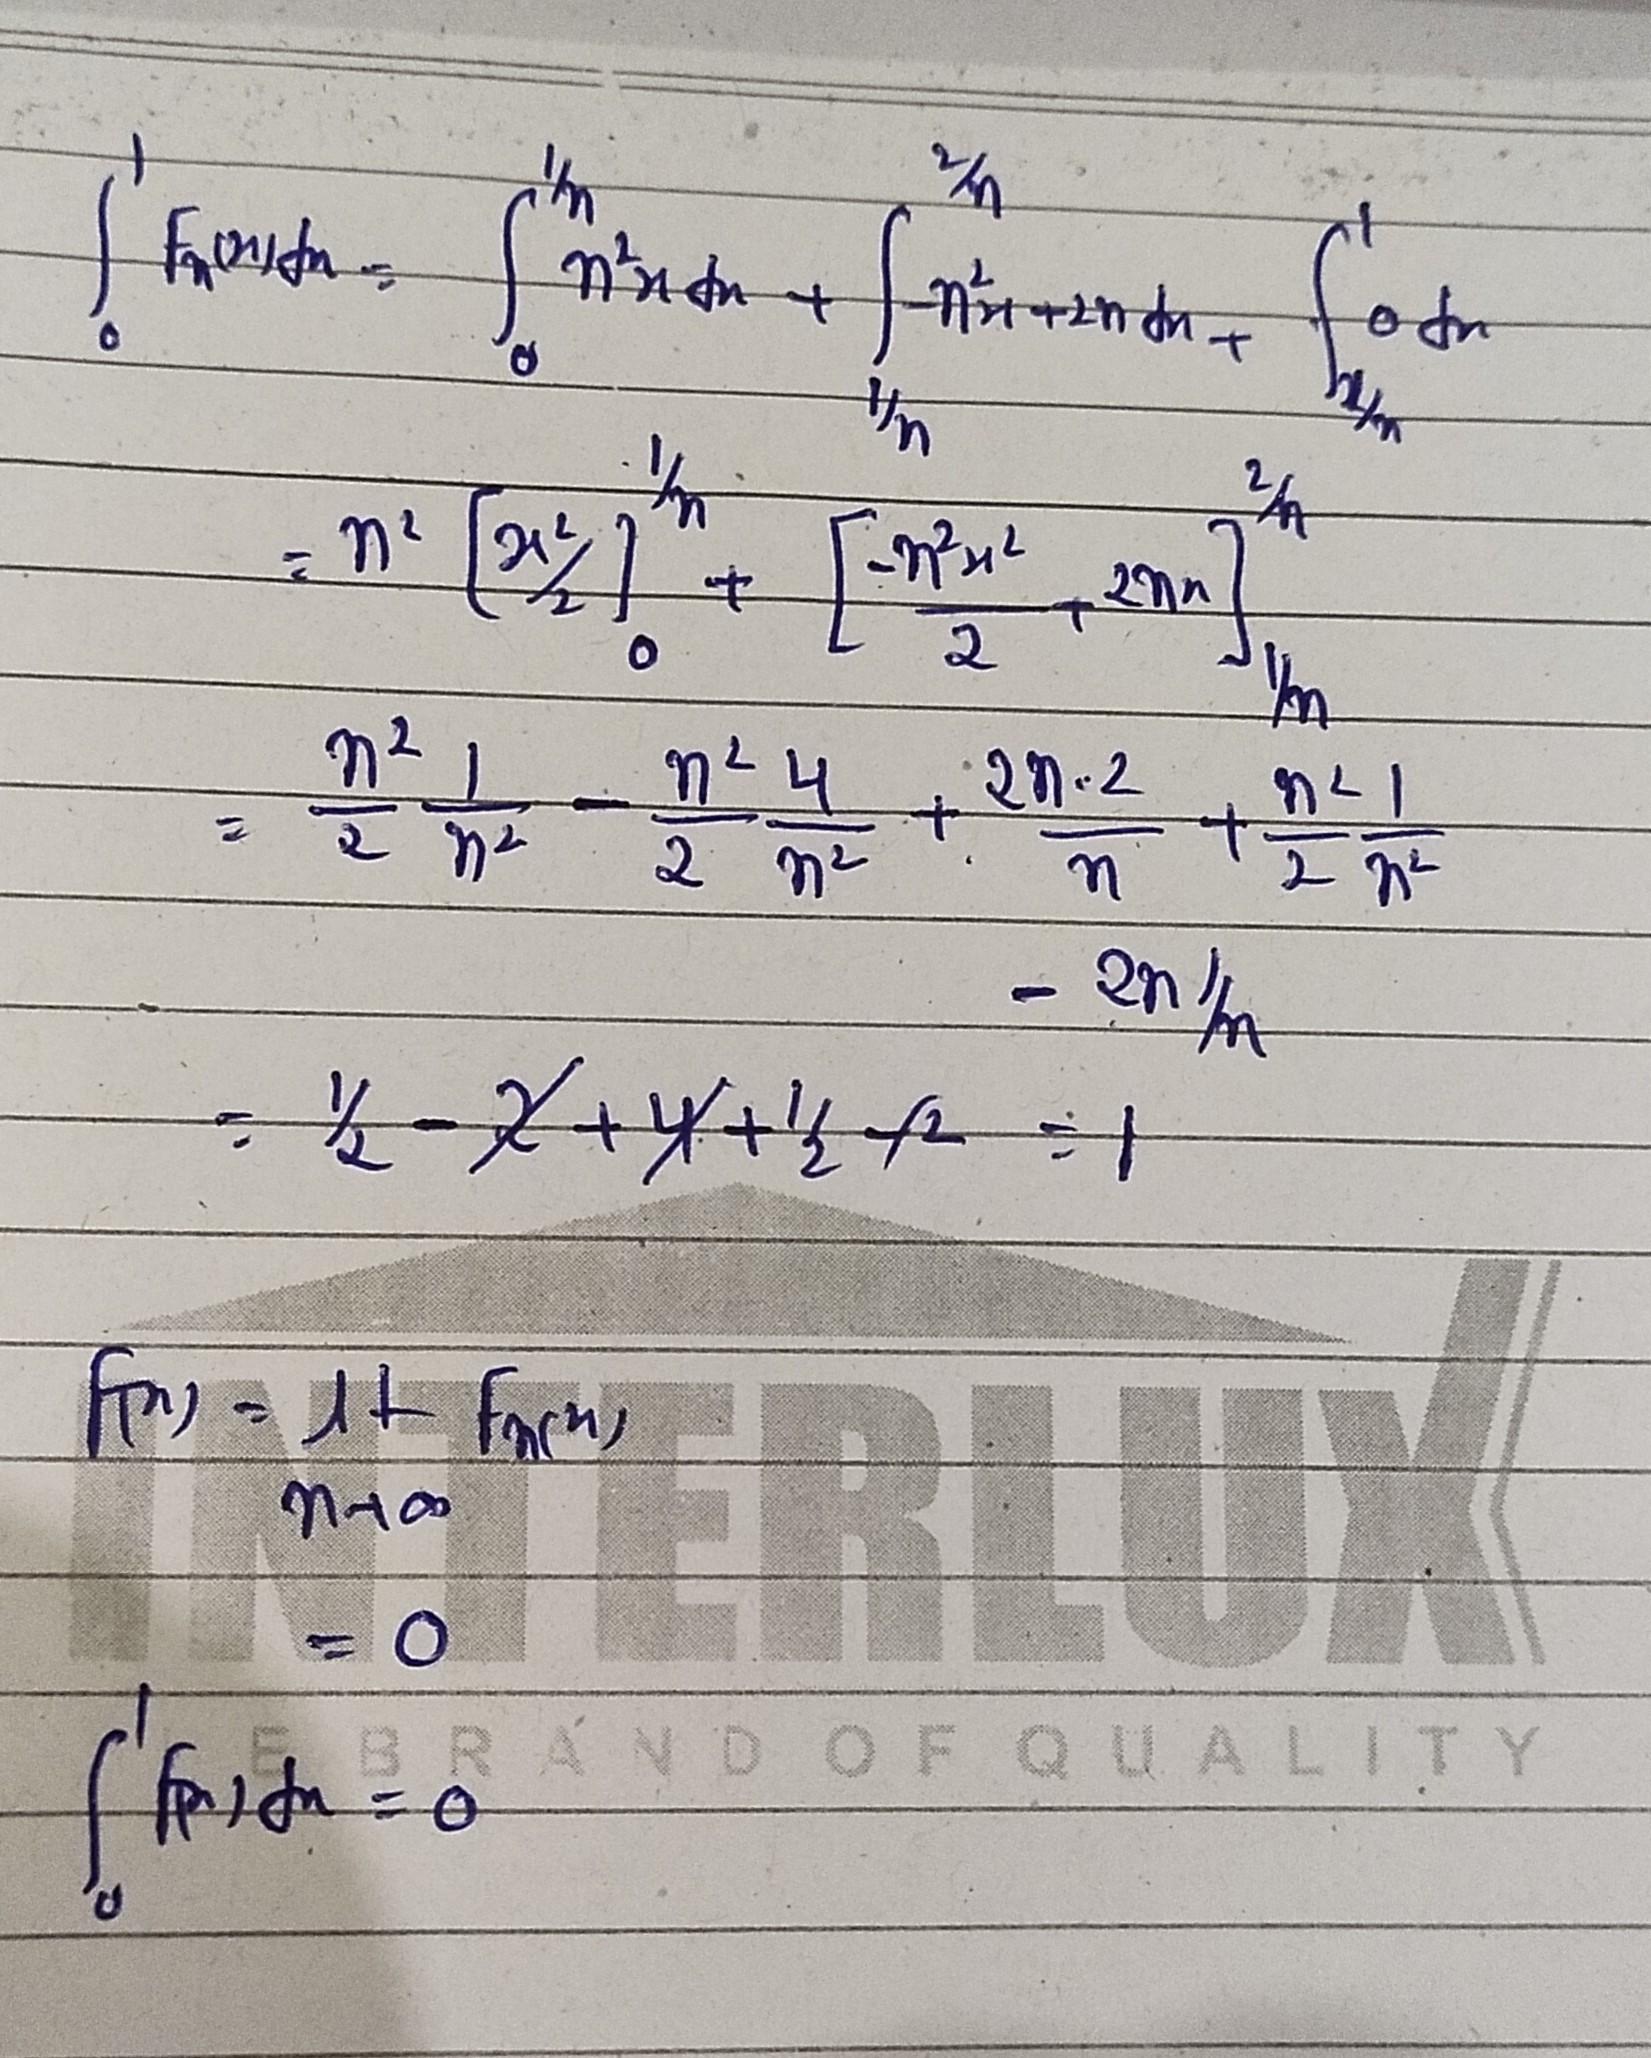 ∫₀¹ fₙ(x)dx = ∫₀^{1/n} n²x dx + ∫_{1/n}^{2/n} -n²x+2n dx + ∫_{2/n}^1 0 dx
= n² [x²/2]₀^{1/n} + [-n²x²/2 + 2nx]_{1/n}^{2/n}
= n²/2 1/n² - n²/2 4/n² + 2n·2/n + n²/2 1/n²
- 2n 1/n
= 1/2 - 2 + 4 + 1/2 - 2 = 1
f(x) = lt fₙ(x)
n→∞
= 0
INTERLUX
E BRAND OF QUALITY
∫₀¹ f(x) dx = 0